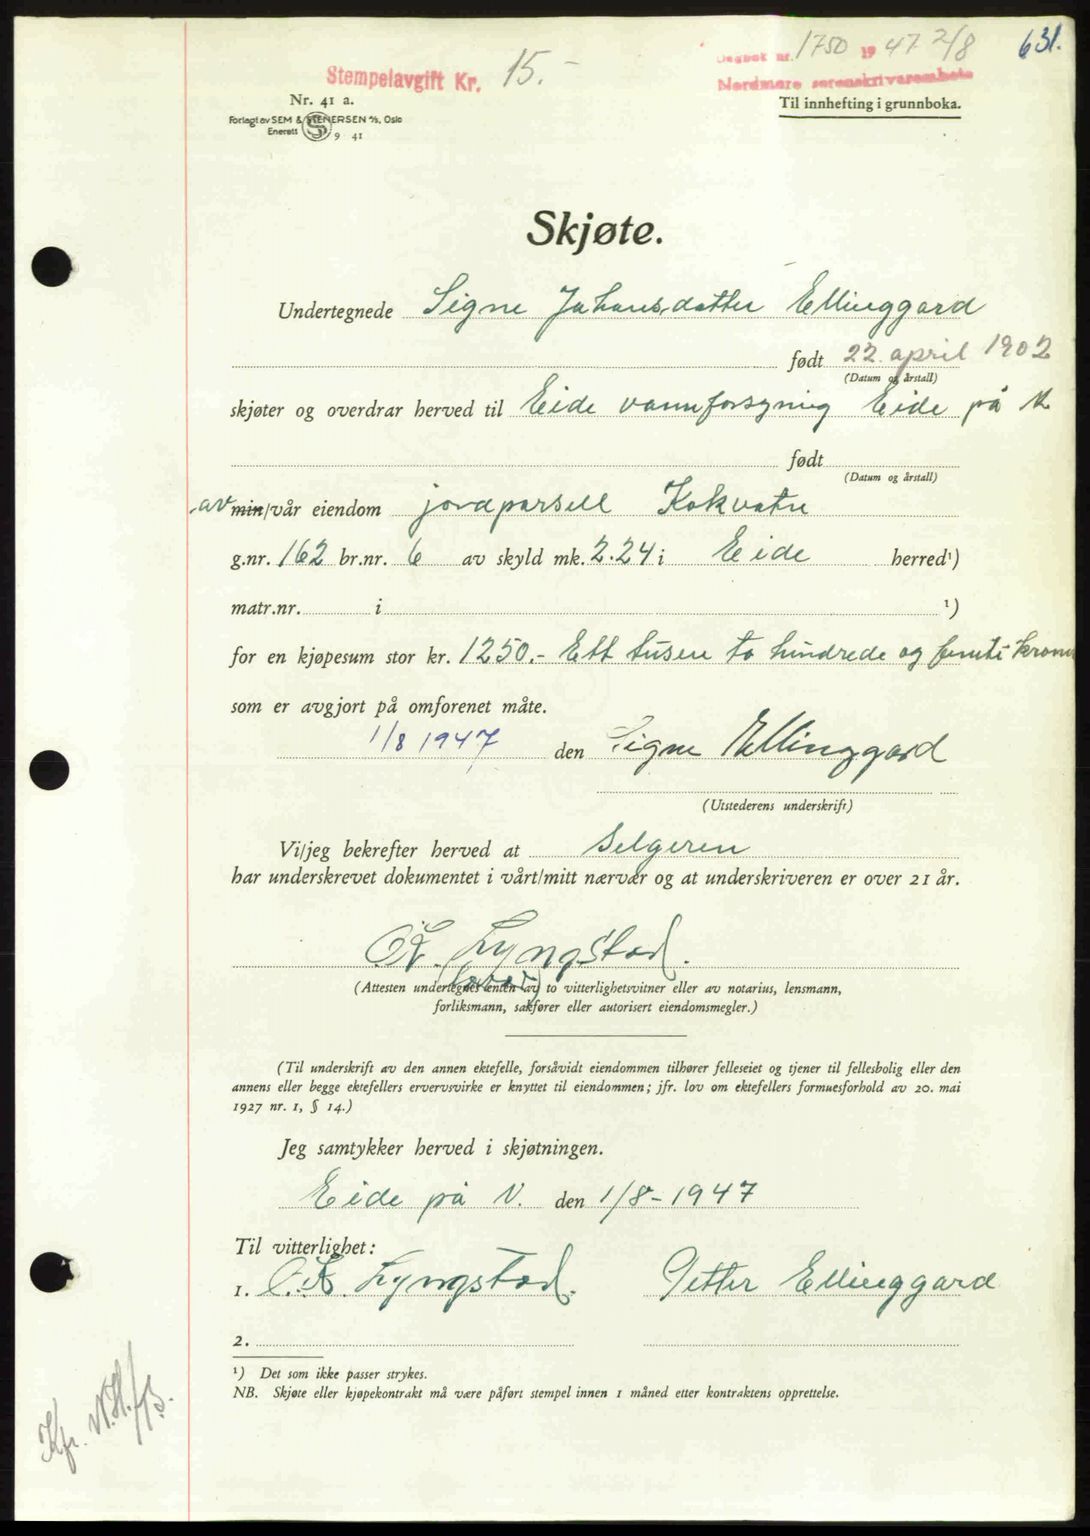 Dagbok nr. 1750 1947 2/8 631.
Stempelavgift Kr. 15.-
Nordmøre sorenskriverembete
Nr. 41 a.
Til innhefting i grunnboka.
Forlagt av SEM & STENERSEN A/S, Oslo
Enerett 9 41
Skjøte.
Undertegnede Signe Johansdatter Ellinggard
født 22. april 1902
(Datum og årstall)
skjøter og overdrar herved til Eide vannforsyning Eide på N
født
(Datum og årstall)
av min/vår eiendom jordparsell Kokvatn
g.nr. 162 br.nr. 6 av skyld mk. 2.24 i Eide herred¹)
matr.nr. i ¹)
for en kjøpesum stor kr. 1250.- Ett tusen to hundrede og femti kroner
som er avgjort på omforenet måte.
1/8 1947 den Signe Ellinggard
(Utstederens underskrift)
Vi/jeg bekrefter herved at selgeren
har underskrevet dokumentet i vårt/mitt nærvær og at underskriveren er over 21 år.
O.K. Lyngstad.
(Attesten undertegnes enten av to vitterlighetsvitner eller av notarius, lensmann,
forliksmann, sakfører eller autorisert eiendomsmegler.)
(Til underskrift av den annen ektefelle, forsåvidt eiendommen tilhører felleseiet og tjener til fellesbolig eller den
annens eller begge ektefellers ervervsvirke er knyttet til eiendommen; jfr. lov om ektefellers formuesforhold av 20. mai
1927 nr. 1, § 14.)
Jeg samtykker herved i skjøtningen.
Eide på N. den 1/8-1947
Til vitterlighet:
1. O.K. Lyngstad. Petter Ellinggard
2.
¹) Det som ikke passer strykes.
NB. Skjøte eller kjøpekontrakt må være påført stempel innen 1 måned etter kontraktens opprettelse.
Kfr. N.H./B.